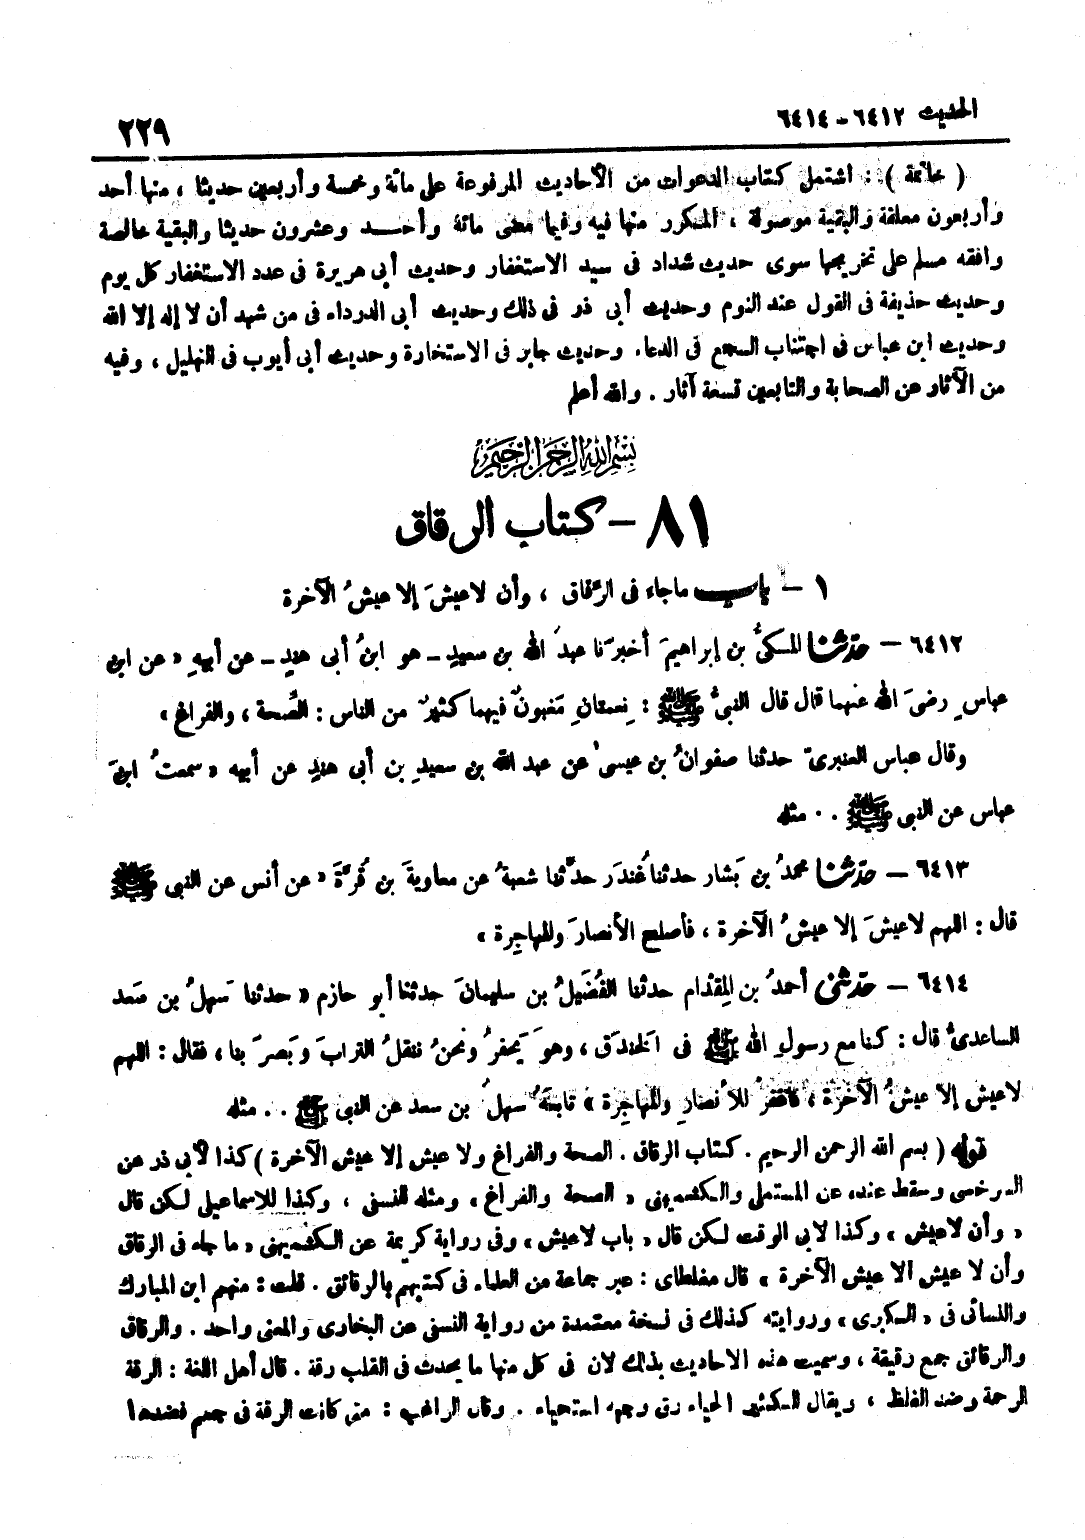 الحديث ٦٤١٢ - ٦٤١٤
٢٢٩
( خاتمة ) : اشتمل كتاب الدعوات من الأحاديث المرفوعة على مائة وخمسة وأربعين حديثا ، منها أحد
وأربعون معلقة والبقية موصولة ، المكرر منها فيه وفيما مضى مائة وأحـــد وعشرون حديثا والبقية خالصة
وافقه مسلم على تخريجها سوى حديث شداد فى سيد الاستغفار وحديث أبى هريرة فى عدد الاستغفار كل يوم
وحديث حذيفة فى القول عند النوم وحديث أبى ذر فى ذلك وحديث أبى الدرداء فى من شهد أن لا إله إلا الله
وحديث ابن عباس فى اجتناب السجع فى الدعاء وحديث جابر فى الاستخارة وحديث أبى أيوب فى التهليل ، وفيه
من الآثار عن الصحابة والتابعين تسعة آثار . والله أعلم
بسم الله الرحمن الرحيم
٨١ – كتاب الرقاق
١ – باب ما جاء فى الرِّقاق ، وأن لا عيشَ إلا عيشُ الآخرة
٦٤١٢ – حدّثنا المكىُّ بن إبراهيمَ أخبرَنا عبدُ الله بن سعيدٍ ـ هو ابنُ أبى هندٍ ـ عن أبيهِ « عن ابن
عباسٍ رضىَ الله عنهما قال قال النبىُّ ﷺ : نِعمتانِ مَغبونٌ فيهما كثيرٌ من الناس : الصِّحة ، والفراغ »
وقال عباس العنبرىّ حدثنا صفوانُ بن عيسىٰ عن عبد الله بن سعيدِ بن أبى هندٍ عن أبيه « سمعتُ ابنَ
عباس عن النبى ﷺ . . مثله
٦٤١٣ – حدّثنا محمدُ بن بَشار حدثنا غُندَر حدَّثنا شعبةُ عن معاويةَ بن قُرَّةَ « عن أنس عن النبى ﷺ
قال : اللهم لا عيشَ إلا عيشُ الآخرة ، فأصلح الأنصارَ والمهاجِرة »
٦٤١٤ – حدّثنى أحمدُ بن المِقدام حدثنا الفُضَيلُ بن سليمانَ حدثنا أبو حازم « حدثنا سَهلُ بن سَعد
الساعدىُّ قال : كنا مع رسولِ الله ﷺ فى الخندَق ، وهوَ يَحفرُ ونحنُ ننقلُ الترابَ وبَصرَ بنا ، فقال : اللهم
لا عيش إلا عيشُ الآخرة ، فاغفرْ للأنصارِ والمهاجِرة » تابعَهُ سهلُ بن سعد عن النبى ﷺ . . مثله
قوله ( بسم الله الرحمن الرحيم . كتاب الرقاق . الصحة والفراغ ولا عيش إلا عيش الآخرة ) كذا لأبى ذر عن
السرخسى وسقط عنده عن المستملى والكشميهنى « الصحة والفراغ » ومثله للنسفى ، وكذا للاسماعيلى لكن قال
« وأن لا عيش » وكذا لابى الوقت لكن قال « باب لا عيش » وفى رواية كريمة عن الكشميهنى « ما جاء فى الرقاق
وأن لا عيش الا عيش الآخرة » قال مغلطاى : عبر جماعة من العلماء فى كتبهم بالرقائق . قلت : منهم ابن المبارك
والنسائى فى « الكبرى » وروايته كذلك فى نسخة معتمدة من رواية النسفى عن البخارى والمعنى واحد . والرقاق
والرقائق جمع رقيقة ، وسميت هذه الاحاديث بذلك لان فى كل منها ما يحدث فى القلب رقة . قال أهل اللغة : الرقة
الرحمة وضد الغلظ ، ويقال للكثير الحياء رق وجهه استحياء . وقال الراغب : متى كانت الرقة فى جسم فضدها